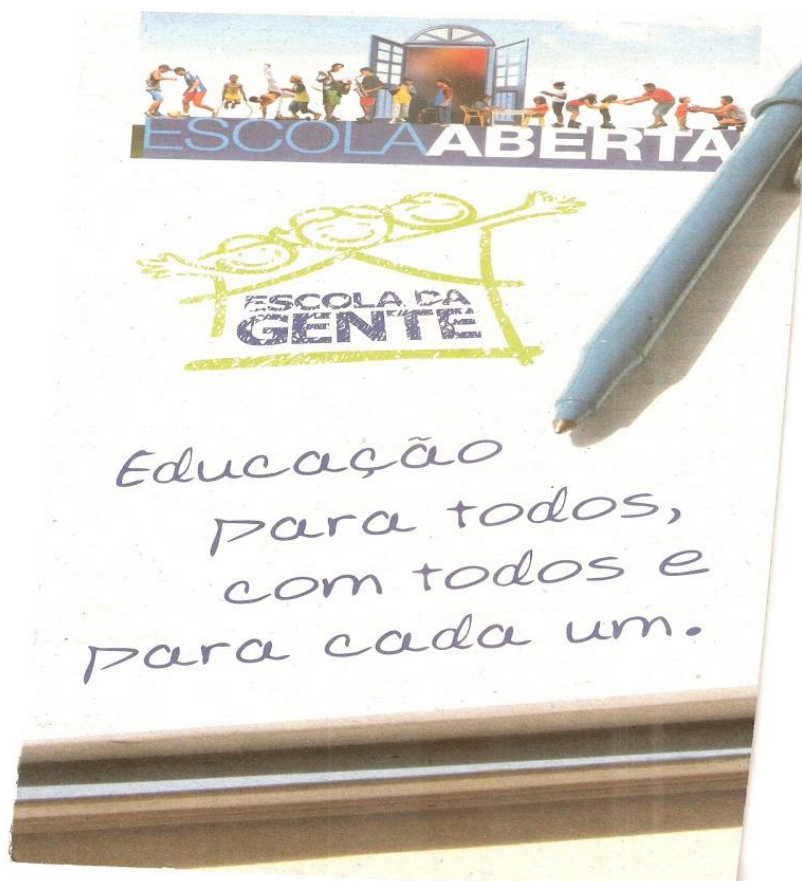 ESCOLAABERTA
ESCOLA DA
GENTE
Educação
para todos,
com todos e
para cada um.